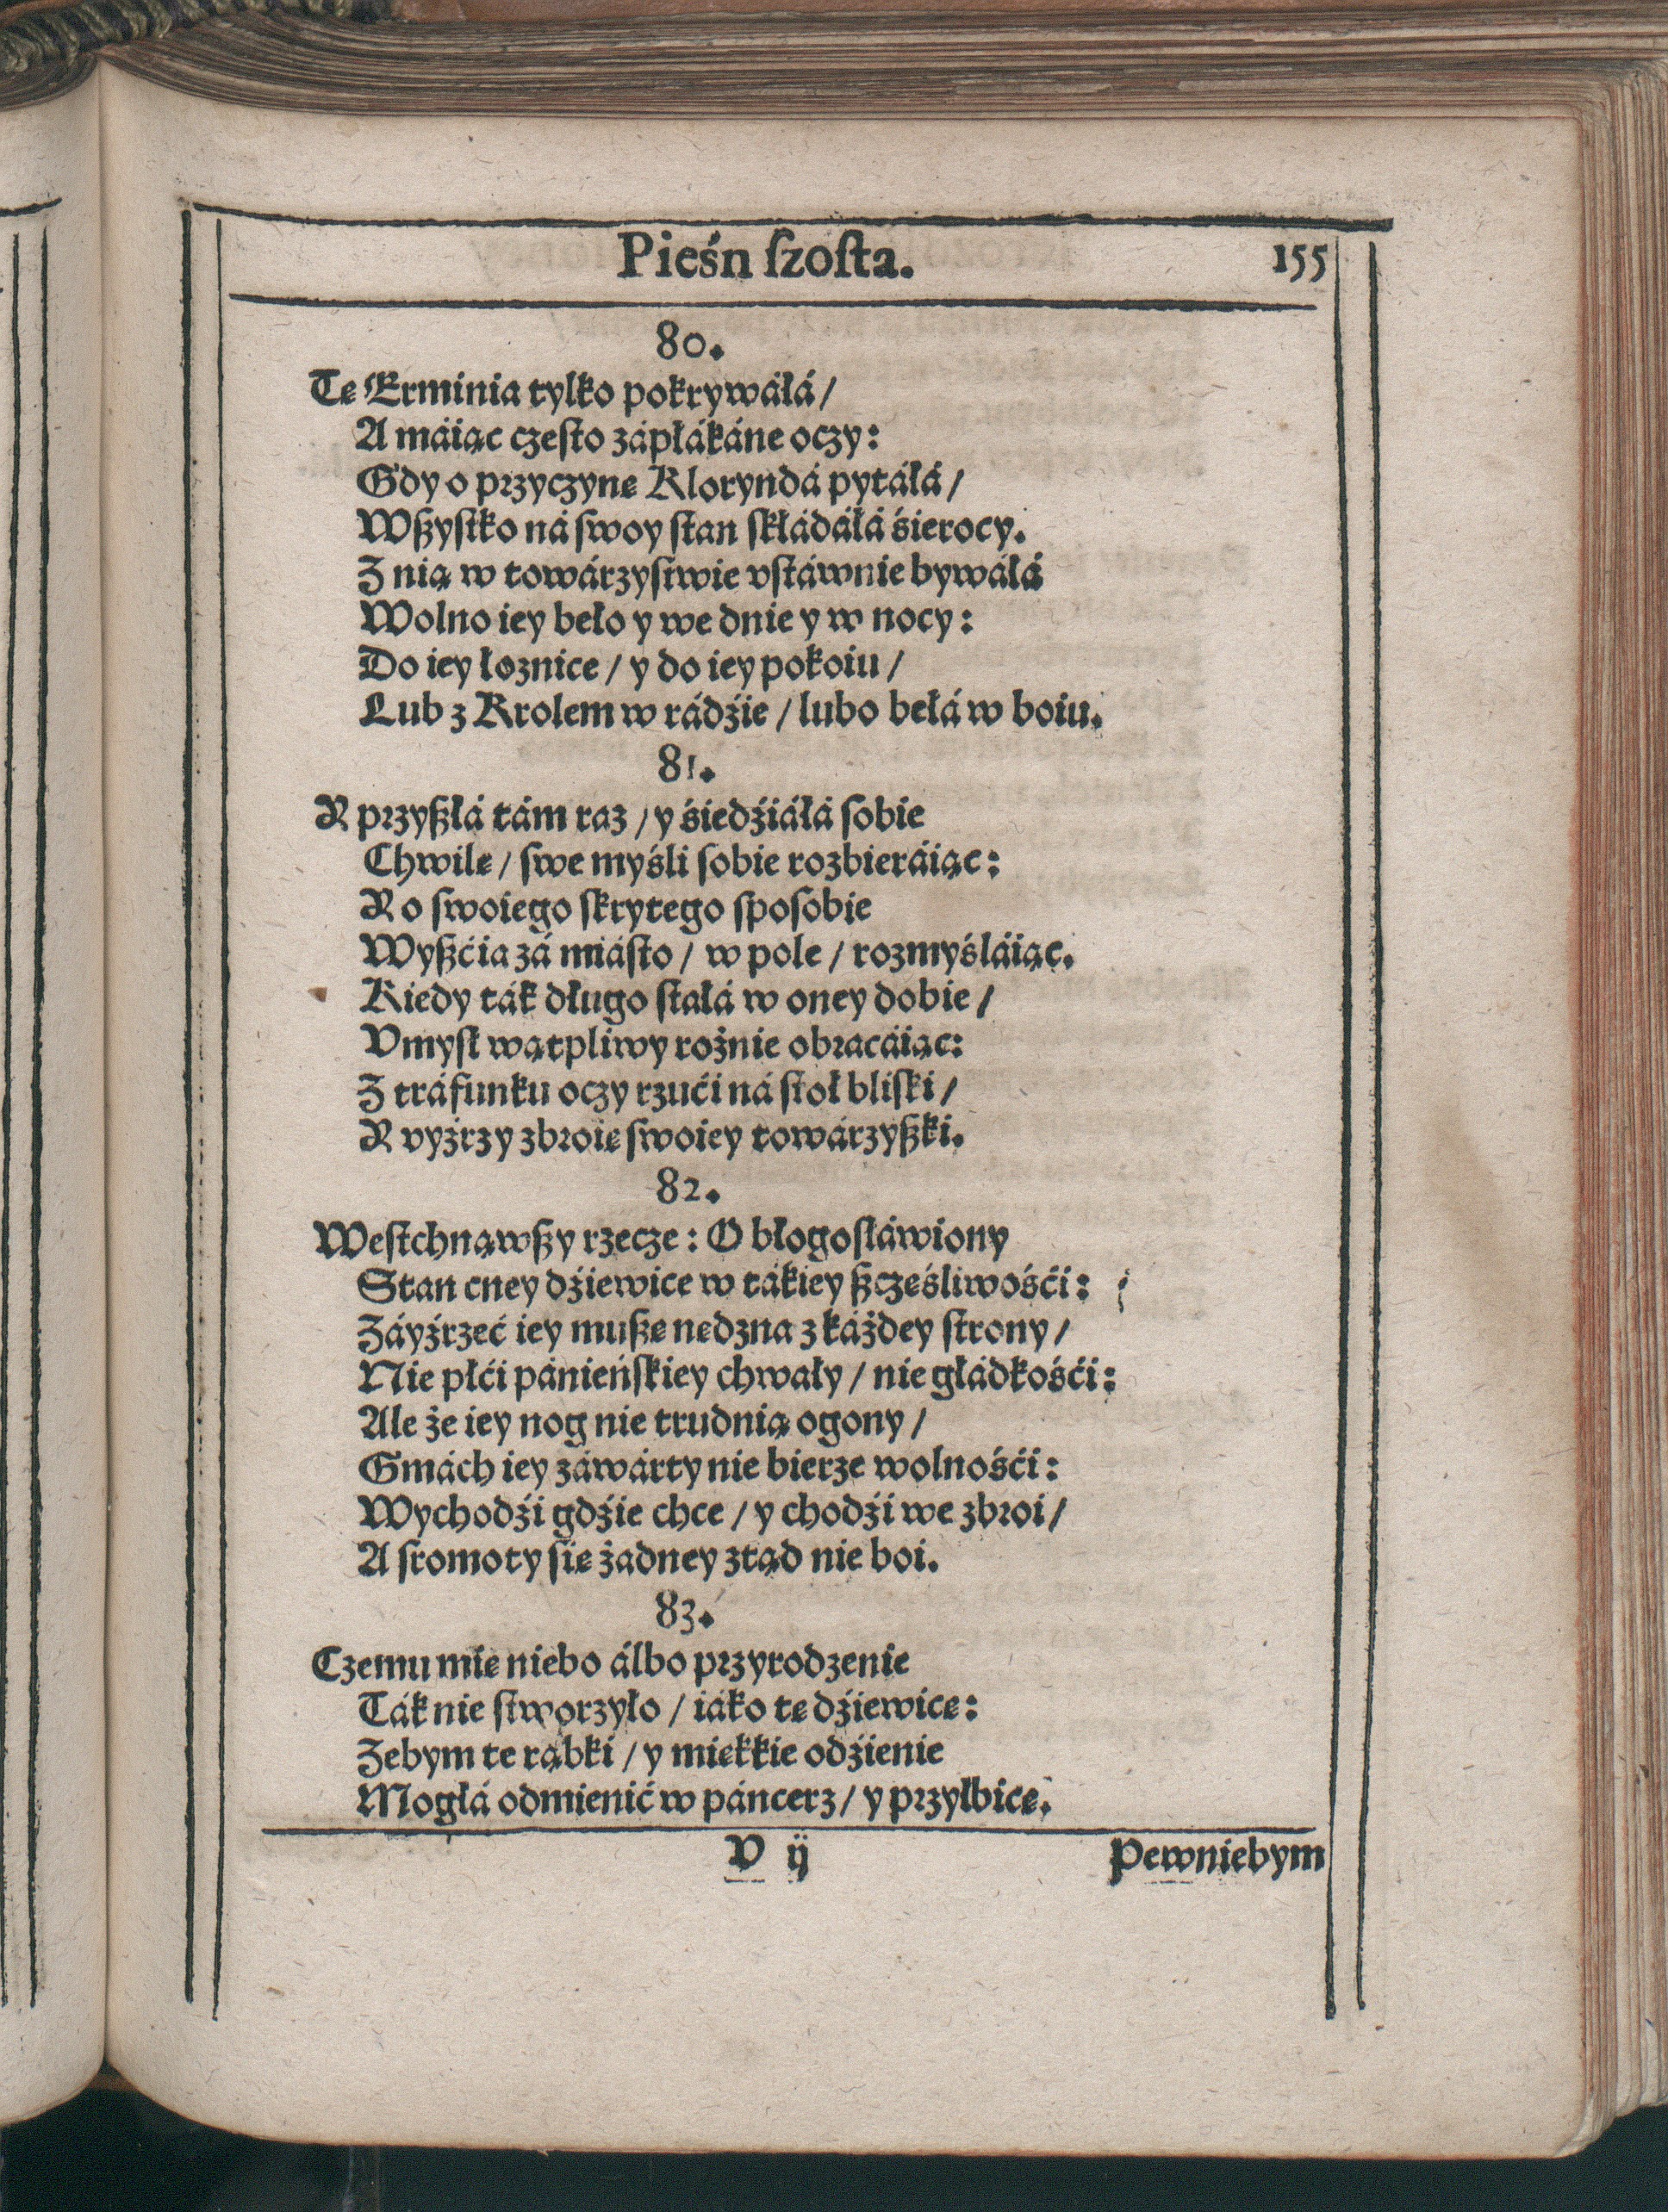 Pieśń ſzoſta.
155
80.
Tę Erminia tylko pokrywáłá /
A máiąc często zápłákáne oczy:
Gdy o przyczynę Kloryndá pytáłá /
Wßyſtko ná ſwoy ſtan ſkłádáłá śierocy.
Z nią w towárzyſtwie vſtáwnie bywáłá
Wolno iey beło y we dnie y w nocy:
Do iey łoznice / y do iey pokoiu /
Lub z Krolem w rádźie / lubo bełá w boiu.
81.
R przyßłá tám raz / y śiedźiáłá ſobie
Chwilę / ſwe myśli ſobie rozbieráiąc:
R o ſwoiego ſkrytego ſpoſobie
Wyßćia zá miáſto / w pole / rozmyśláiąc.
Kiedy ták długo ſtałá w oney dobie /
Vmyſł wątpliwy rożnie obracáiąc:
Z tráfunku oczy rzući ná ſtoł bliſki /
R vyźrzy zbroię ſwoiey towárzyßki.
82.
Weſtchnąwßy rzecze: O błogoſłáwiony
Stan cney dźiewice w tákiey ßczęśliwośći:
Záyźrzeć iey mußę nędzna z káżdey ſtrony /
Nie płći pánieńſkiey chwały / nie głádkośći:
Ale że iey nog nie trudnią ogony /
Gmách iey záwárty nie bierze wolnośći:
Wychodźi gdźie chce / y chodźi we zbroi /
A ſromoty ſię żadney ztąd nie boi.
83.
Czemu mię niebo álbo przyrodzenie
Ták nie ſtworzyło / iáko tę dźiewicę:
Zebym te rąbki / y miękkie odźienie
Mogłá odmienić w páncerz / y przyłbicę.
V ij
Pewniebym